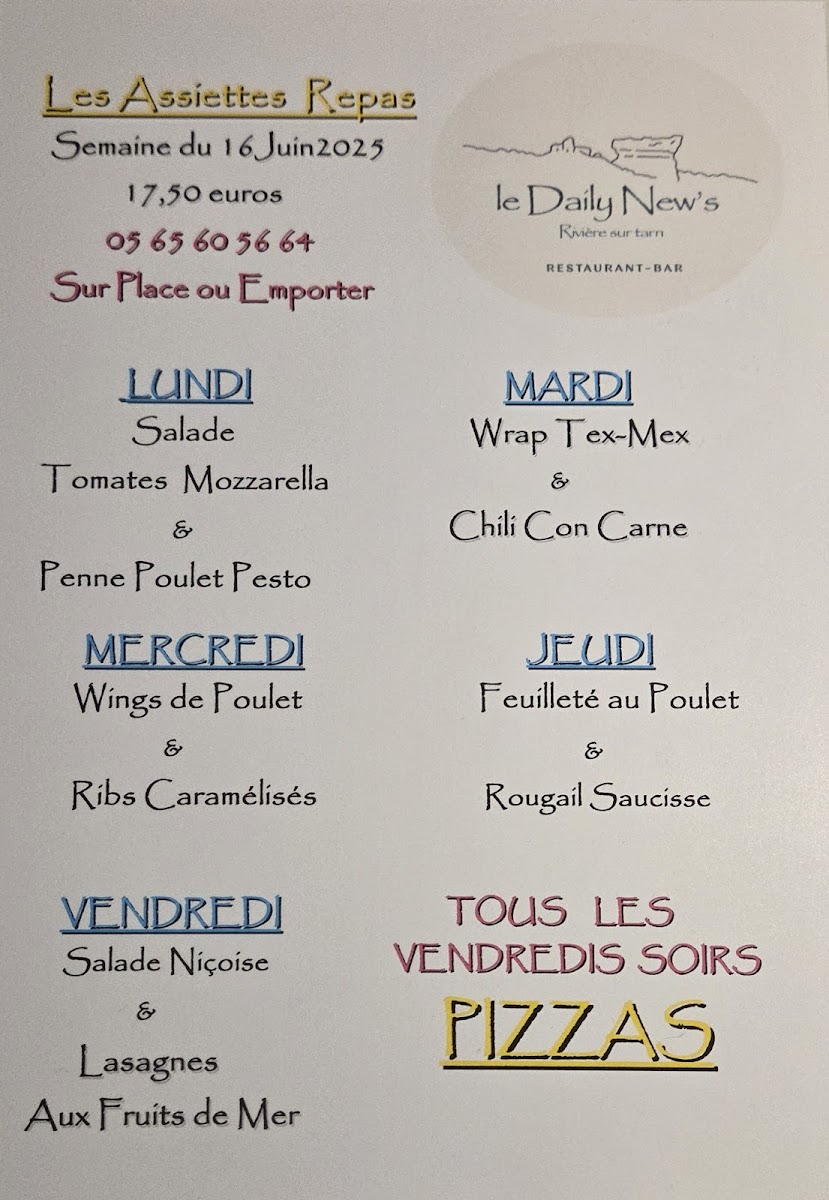 Les Assiettes Repas
Semaine du 16 Juin2025
17,50 euros
05 65 60 56 64
Sur Place ou Emporter
le Daily New's
Rivière sur tarn
RESTAURANT-BAR
LUNDI
Salade
Tomates Mozzarella
&
Penne Poulet Pesto
MARDI
Wrap Tex-Mex
&
Chili Con Carne
MERCREDI
Wings de Poulet
&
Ribs Caramélisés
JEUDI
Feuilleté au Poulet
&
Rougail Saucisse
VENDREDI
Salade Niçoise
&
Lasagnes
Aux Fruits de Mer
TOUS LES
VENDREDIS SOIRS
PIZZAS